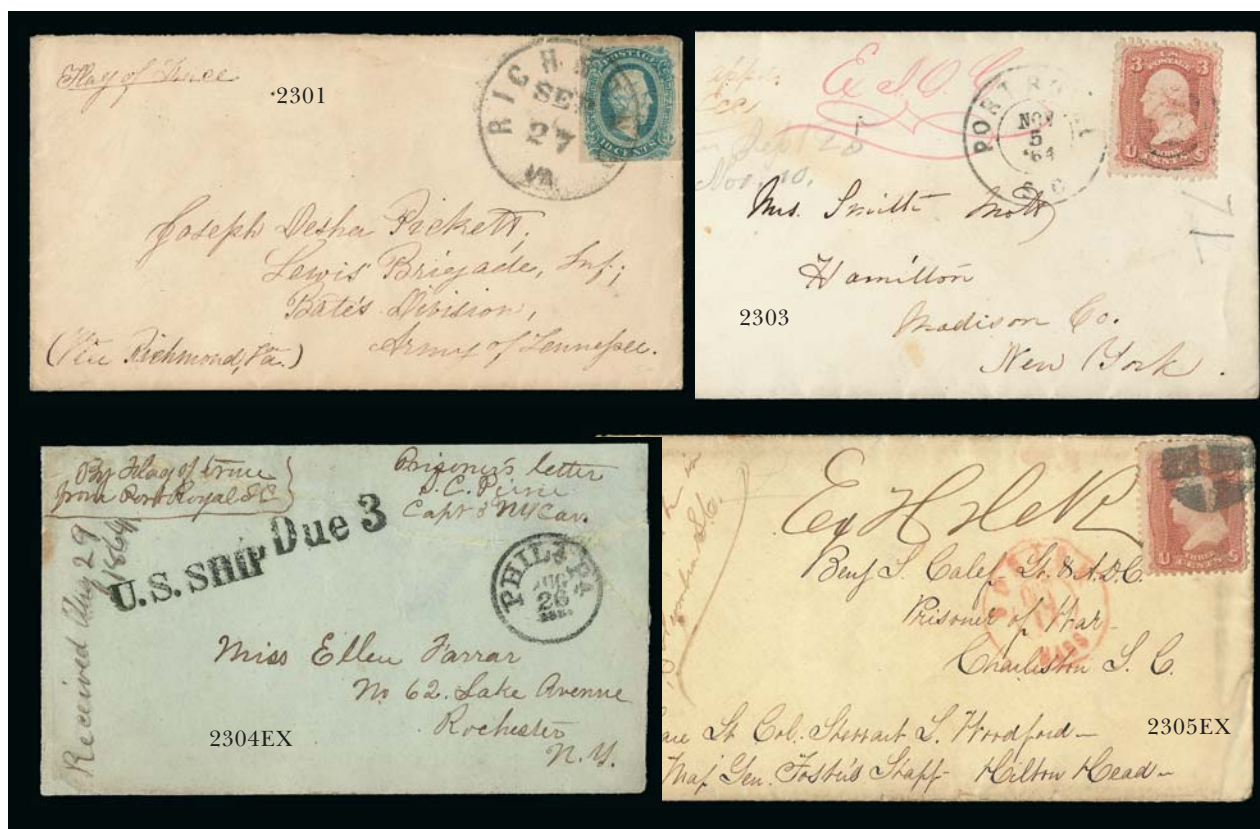 Flag of Truce
2301
RICH
SEP
27
VA.
POSTAGE
10 CENTS
Joseph Desha Pickett,
Lewis' Brigade, Inf;
Bate's Division,
Army of Tennessee.
(Via Richmond, Va.)
E & O. C
PORT ROYAL
NOV
5
'64
S. C
3 3
U S
Sept 28
Nov. 10.
Mrs. Smith Mott
Hamilton
Madison Co.
New York.
2303
By Flag of truce
from Port Royal SC
Prisoner's letter
Capt 3 NY Cav.
U.S. SHIP
Due 3
PHILA PA
AUG
26
Received Aug 29
1864
Miss Ellen Farrar
No 62. Lake Avenue
Rochester
N. Y.
2304EX
Benj S. Calef Lt. & A.D.C.
Prisoner of War
Charleston S. C.
MASS
U S
THREE
CENTS
Lt Col. Stewart L. Woodford
Maj Gen. Foster's Staff Hilton Head
2305EX